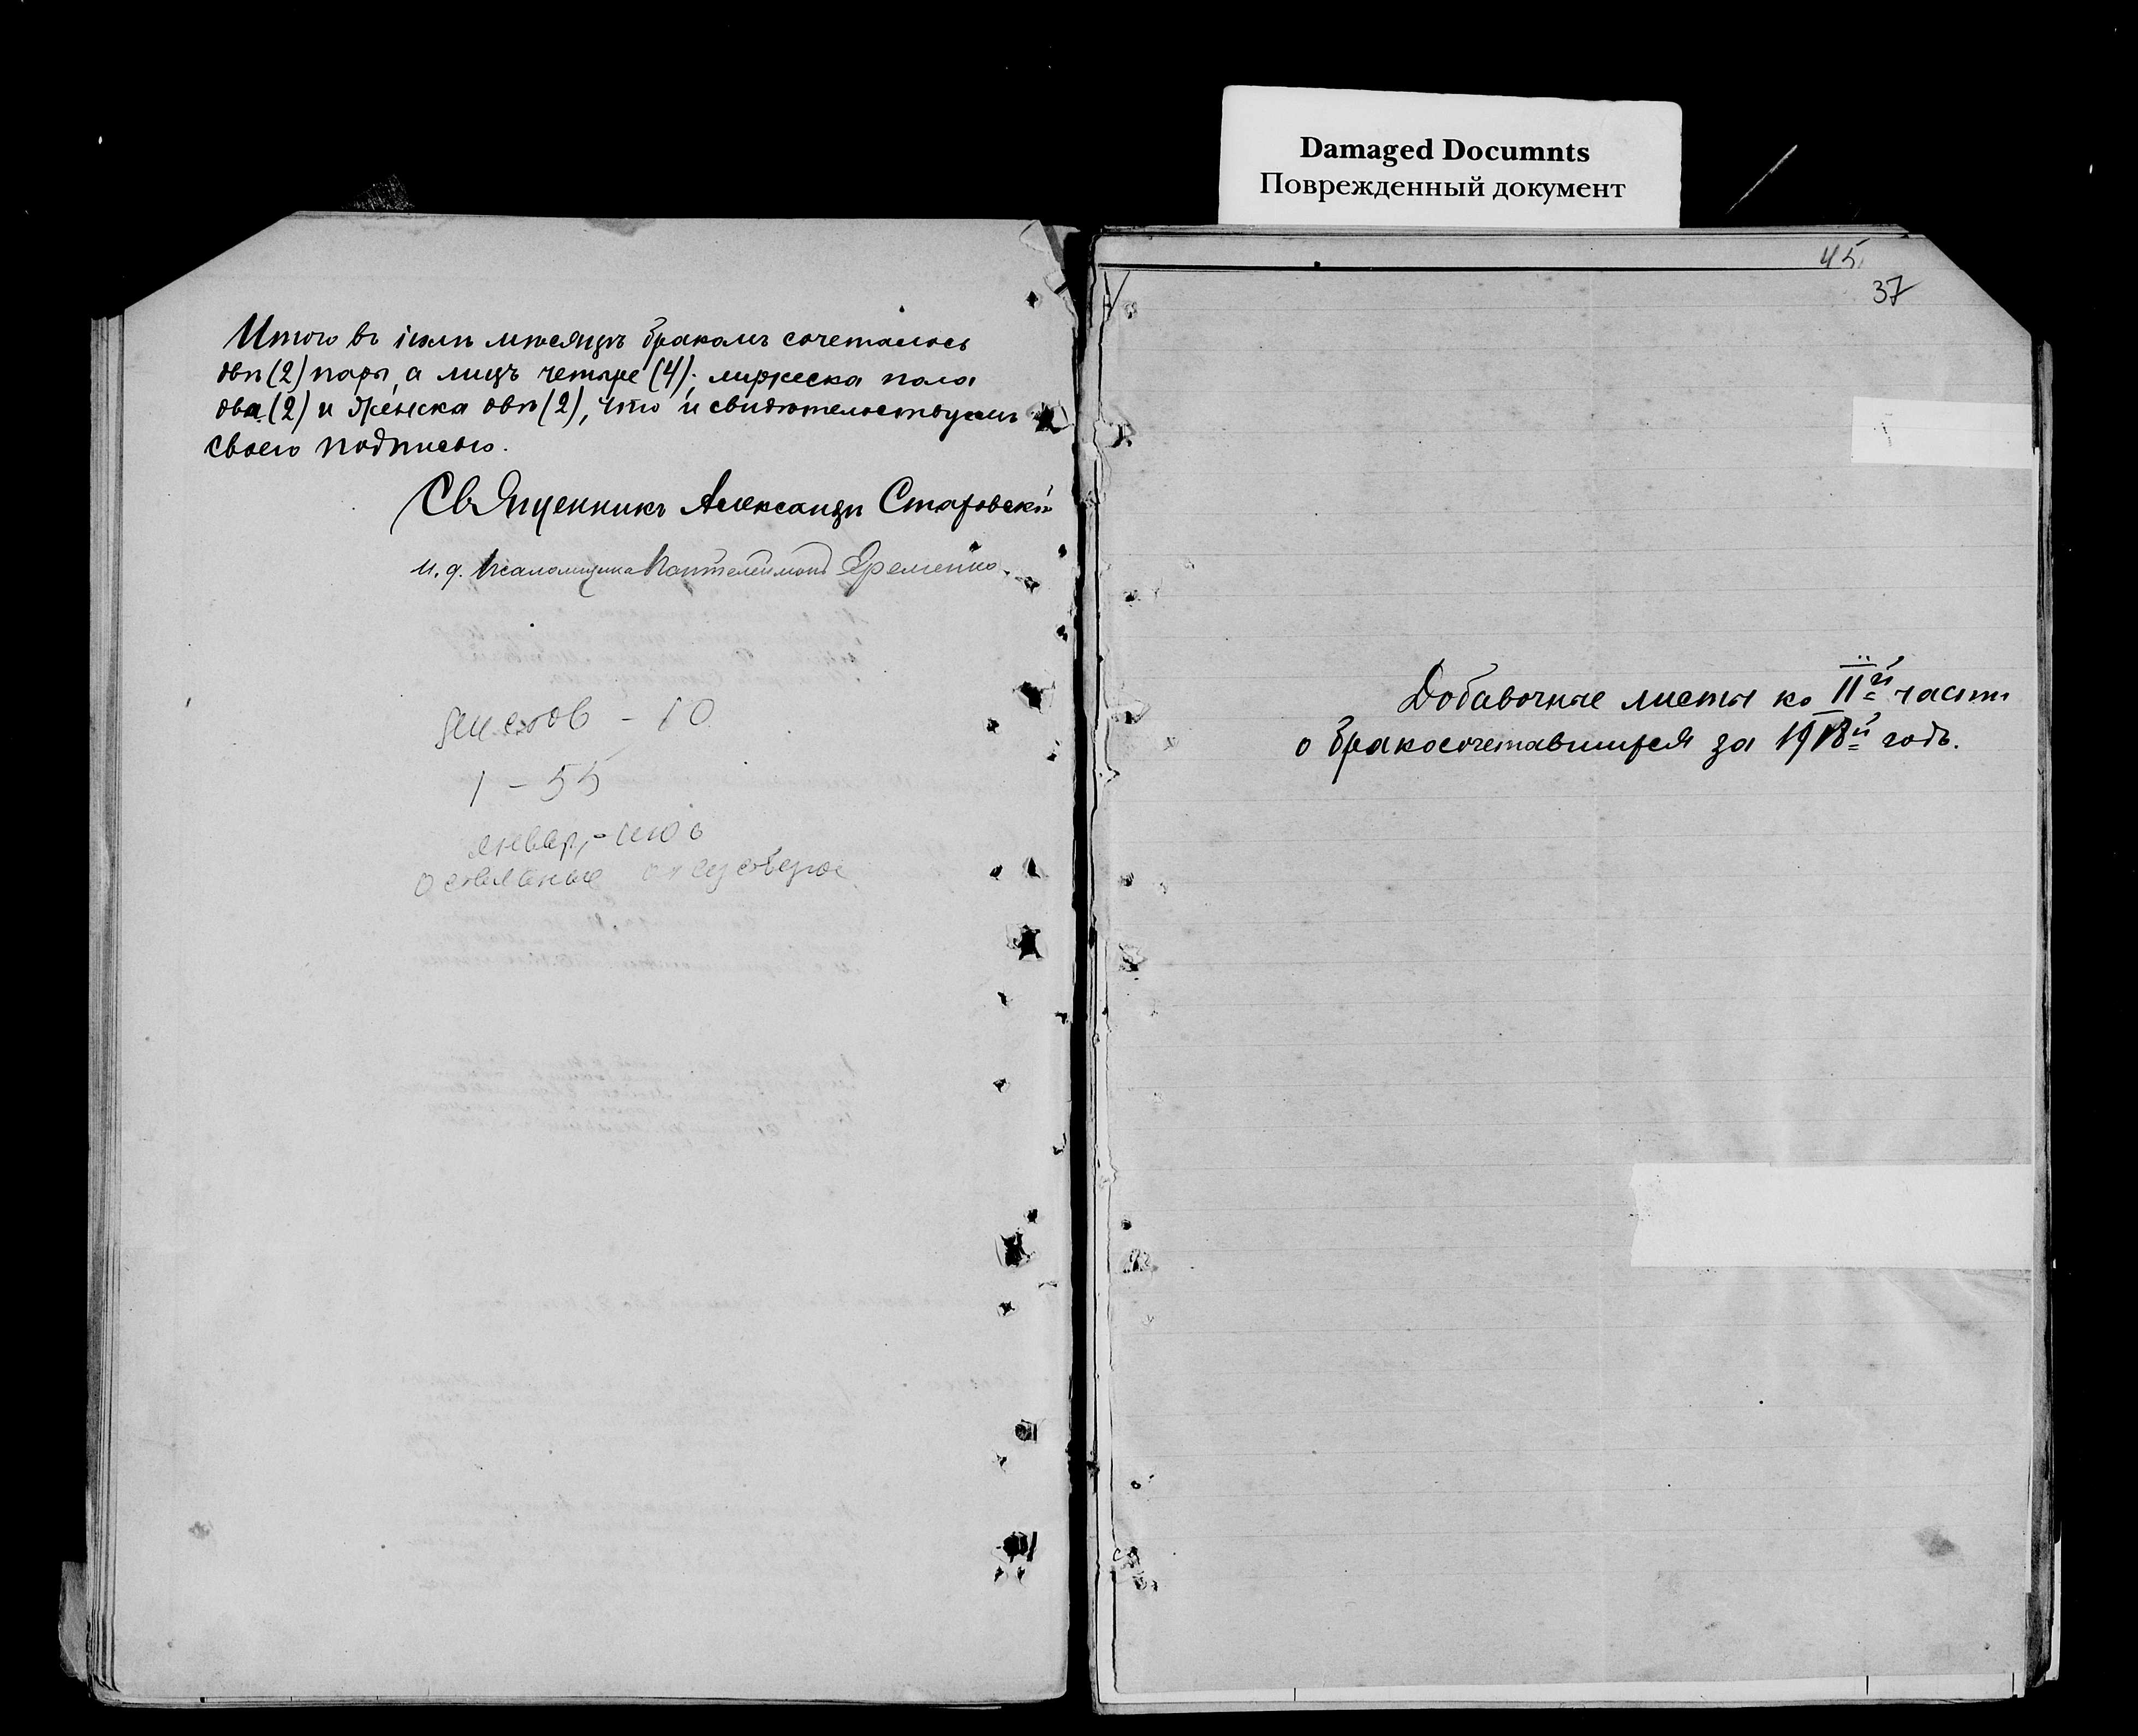 Итого въ іюлѣ мѣсяцѣ бракомъ сочеталось
двѣ (2) пары, а лицъ четыре (4): мужеска пола
два (2) и женска двѣ (2), что и свидѣтельствуемъ
своею подписью.
Священникъ Александръ Старовскій
и. д. псаломщика Пантелеимонъ Еременко.
листов - 10
1 - 55
январ, - июь
остальные отсутствуют
Damaged Documnts
Поврежденный документ
45.
37
Добавочные листы ко II й части
о бракосочетавшихся за 1918 й годъ.